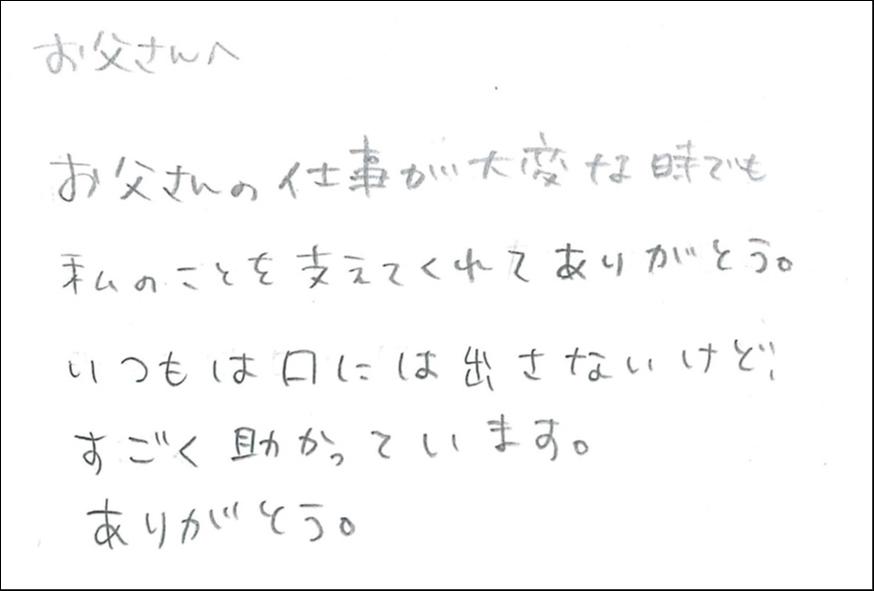 お父さんへ
お父さんの仕事が大変な時でも
私のことを支えてくれてありがとう。
いつもは口には出さないけど
すごく助かっています。
ありがとう。